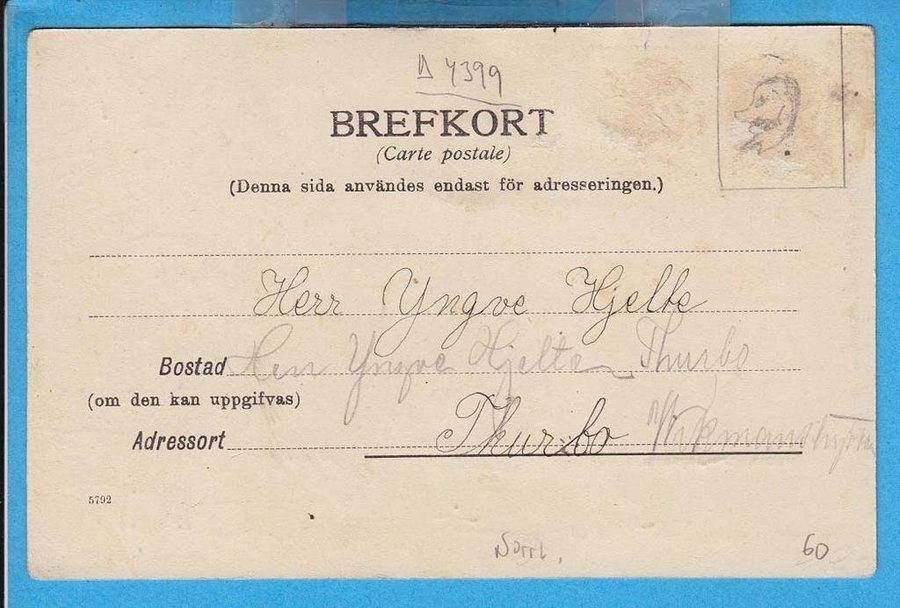 D 4399
BREFKORT
(Carte postale)
(Denna sida användes endast för adresseringen.)
Herr Yngve Hjelte
Bostad Herr Yngve Hjelte Thurbo
(om den kan uppgifvas)
Adressort Thurbo Wikmanshyttan
5792
Norrl.
60